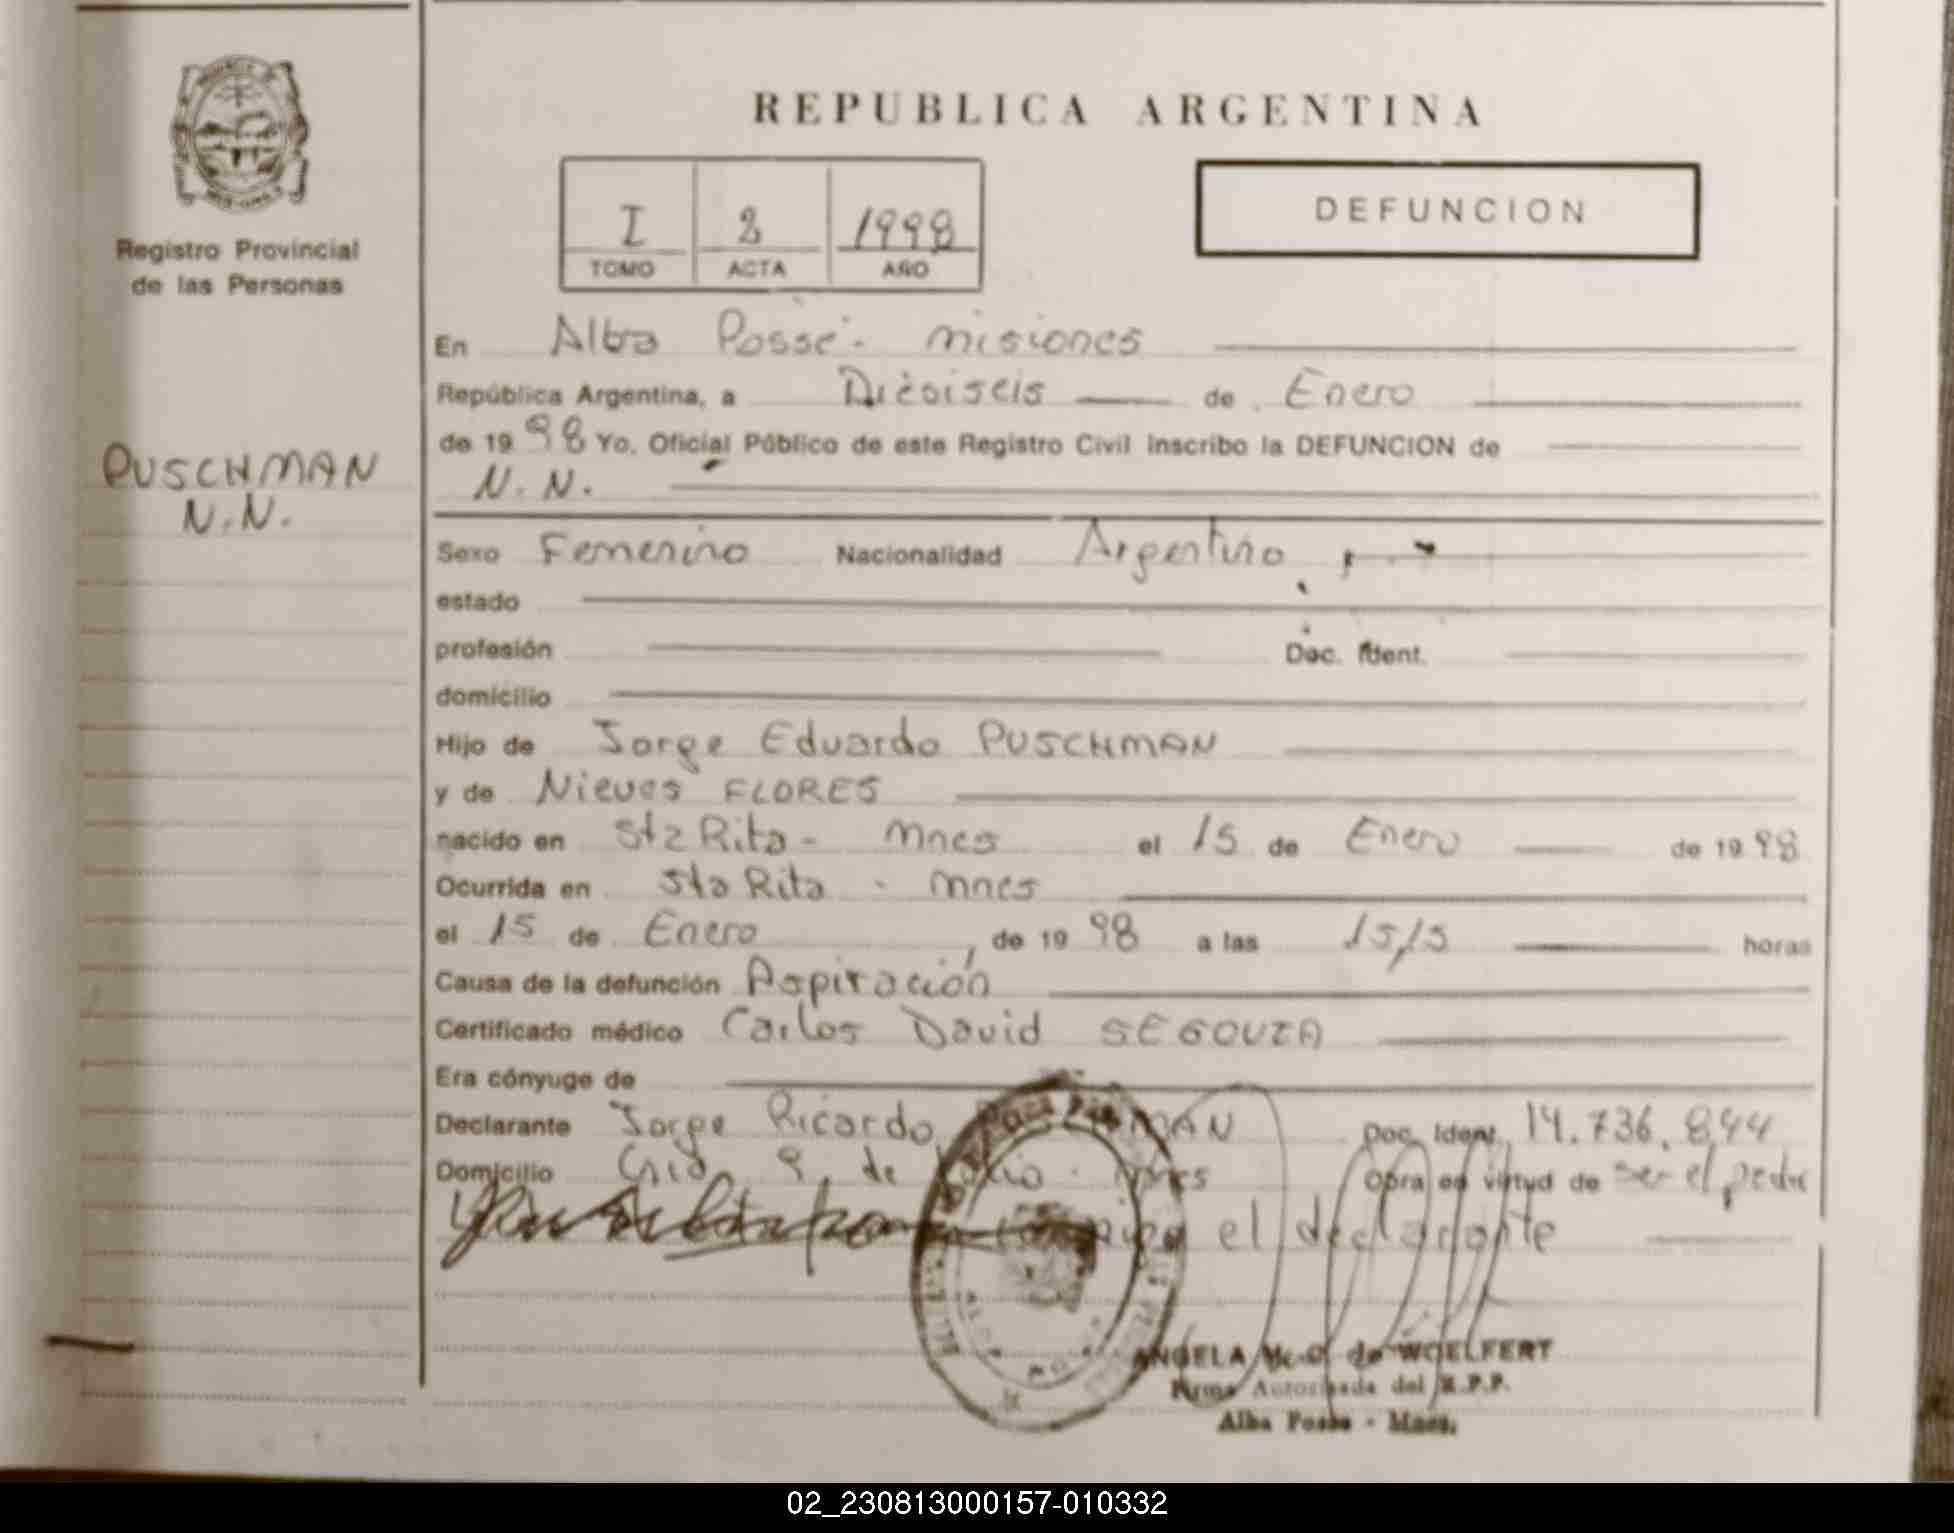 REPUBLICA ARGENTINA
I 2 1998
TOMO ACTA AÑO
DEFUNCION
Registro Provincial
de las Personas
PUSCHMAN
N.N.
En Alba Posse - Misiones
República Argentina, a Dieciseis de Enero
de 1998 Yo, Oficial Público de este Registro Civil inscribo la DEFUNCION de
N.N.
Sexo Femenino Nacionalidad Argentino
estado
profesión Doc. Ident.
domicilio
Hijo de Jorge Eduardo PUSCHMAN
y de Nieves FLORES
nacido en Sta Rita - Mnes el 15 de Enero de 1998
Ocurrida en Sta Rita - Mnes
el 15 de Enero, de 1998 a las 15,15 horas
Causa de la defunción Aspiración
Certificado médico Carlos David SEGOVIA
Era cónyuge de
Declarante Jorge Ricardo Doc. Ident. 14.736.844
Domicilio 9 de Julio - Mnes Obra en virtud de ser el padre
el declarante
ANGELA M. O. de WOELFERT
Firma Autorizada del R.P.P.
Alba Posse - Mnes.
02_230813000157-010332